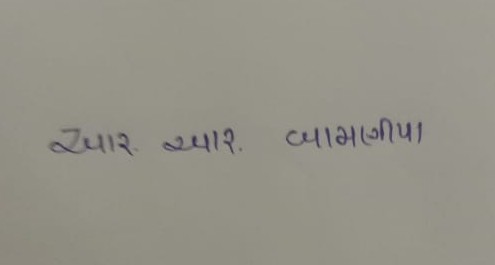 આર. આર. બામણીયા